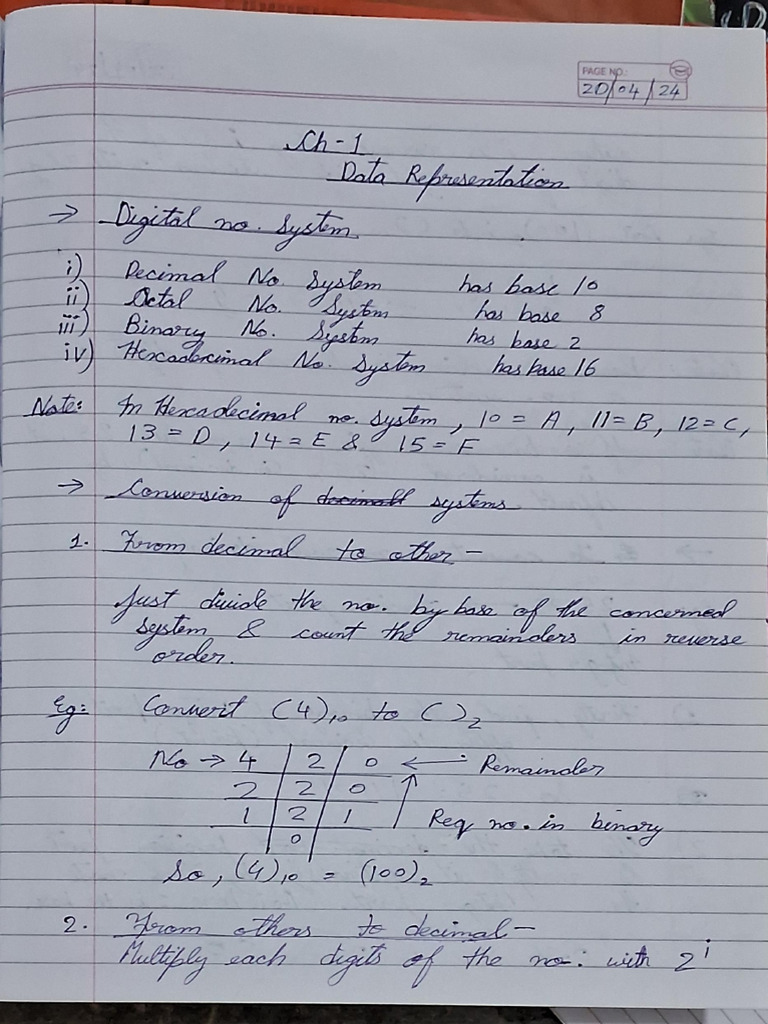 PAGE NO.:
20/04/24
Ch-1
Data Representation
→ Digital no. System
i) Decimal No. System has base 10
ii) Octal No. System has base 8
iii) Binary No. System has base 2
iv) Hexadecimal No. System has base 16
Note: In Hexadecimal no. system, 10 = A, 11 = B, 12 = C,
13 = D, 14 = E & 15 = F
→ Conversion of decimall systems
1. From decimal to other -
Just divide the no. by base of the concerned
system & count the remainders in reverse
order.
Eg: Convert (4)₁₀ to ( )₂
No → 4 | 2 | 0 ← Remainder
2 | 2 | 0
1 | 2 | 1 ↑ Req no. in binary
0
So, (4)₁₀ = (100)₂
2. From others to decimal -
Multiply each digits of the no. with 2ⁱ